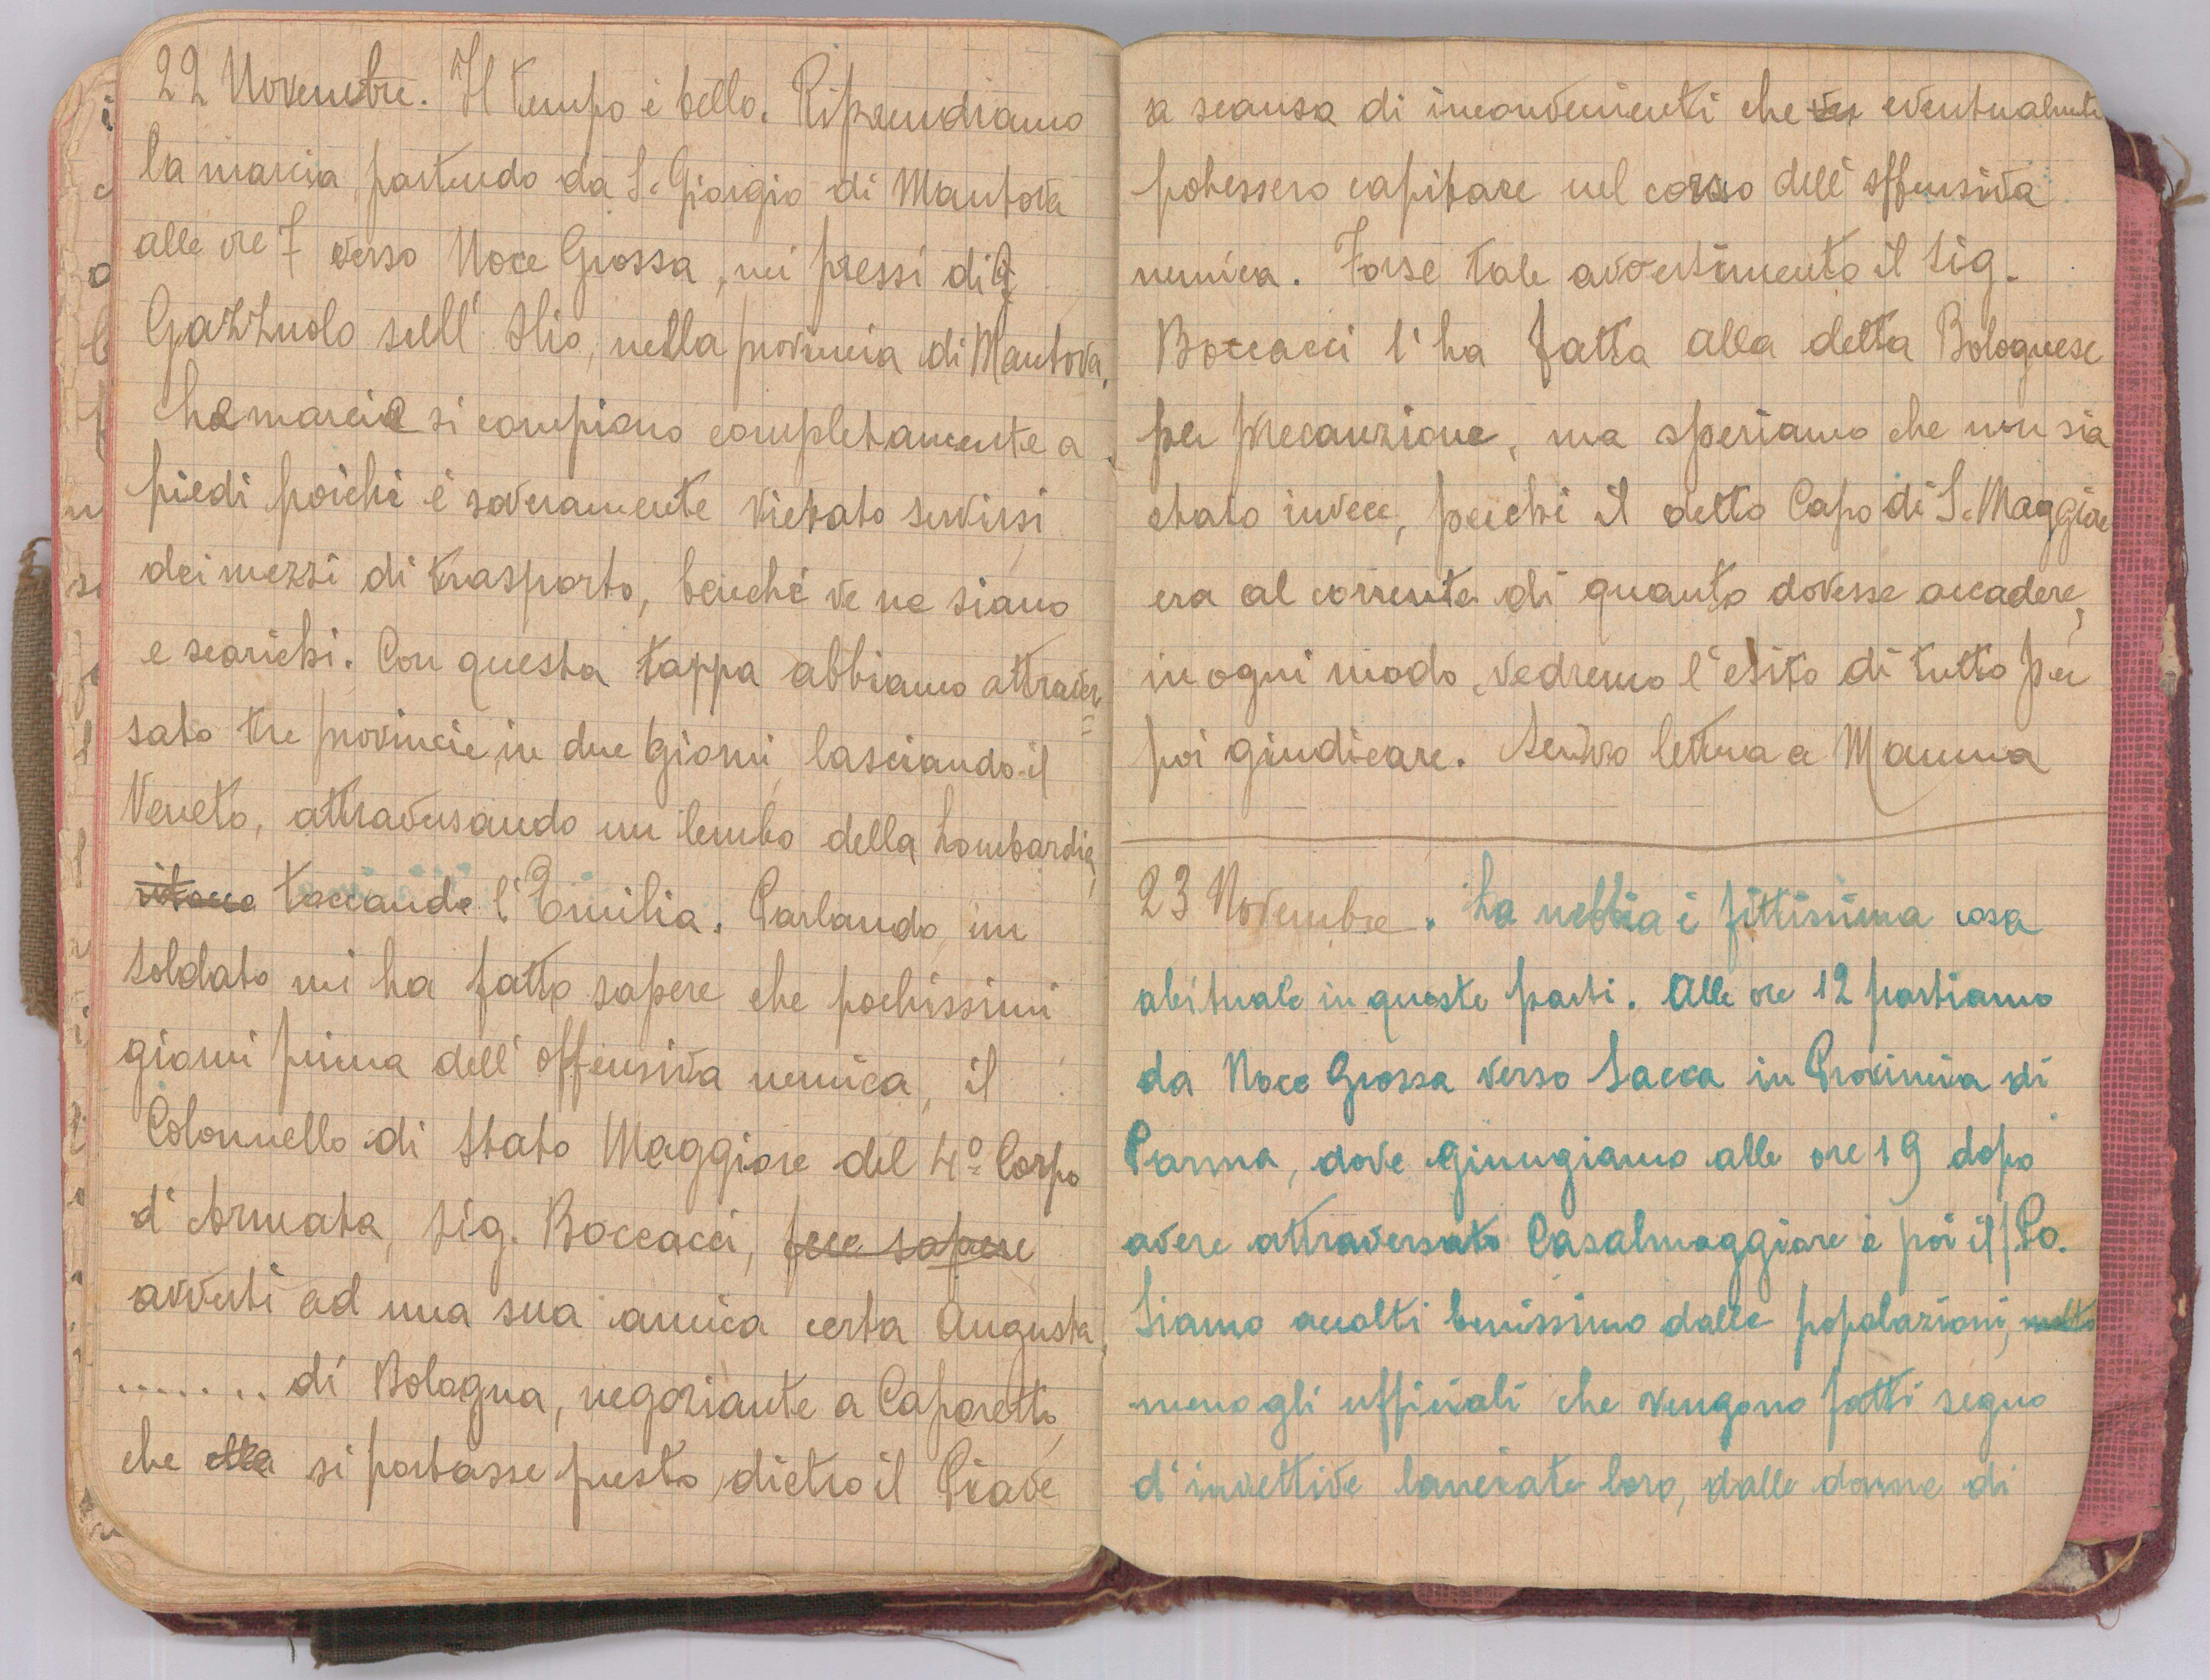 22 Novembre. Il tempo è bello. Riprendiamo
la marcia, partendo da S. Giorgio di Mantova
alle ore 7 verso Noce Grossa, nei pressi di
Gazzuolo sull'Olio, nella provincia di Mantova.
Le marcie si compiono completamente a
piedi poichè è severamente vietato servirsi
dei mezzi di trasporto, benchè ve ne siano
e scarichi. Con questa tappa abbiamo attraver=
sato tre provincie, in due giorni, lasciando il
Veneto, attraversando un lembo della Lombardia,
ritocca toccando l'Emilia. Parlando, un
soldato mi ha fatto sapere che pochissimi
giorni prima dell'offensiva nemica, il
Colonnello di Stato Maggiore del 4º Corpo
d'Armata, Sig. Boccacci, fece sapere
avvertì ad una sua amica certa Augusta,
........ di Bologna, negoziante a Caporetto,
che ella si portasse presto, dietro il Piave
a scansa di inconvenienti che eventualmente
potessero capitare nel corso dell'offensiva
nemica. Forse tale avvertimento il Sig.
Boccacci l'ha fatta alla detta Bolognese
per precauzione, ma speriamo che non sia
stato invece, perchè il detto Capo di S. Maggiore
era al corrente di quanto dovesse accadere,
in ogni modo, vedremo l'esito di tutto per
poi giudicare. Scrivo lettera a Mamma
23 Novembre. La nebbia è fittissima cosa
abituale in queste parti. Alle ore 12 partiamo
da Noce Grossa verso Sacca in Provincia di
Parma, dove giungiamo alle ore 19 dopo
avere attraversato Casalmaggiore e poi il Po.
Siamo accolti benissimo dalle popolazioni, molto
meno gli ufficiali che vengono fatti segno
d'invettive lanciate loro, dalle donne di